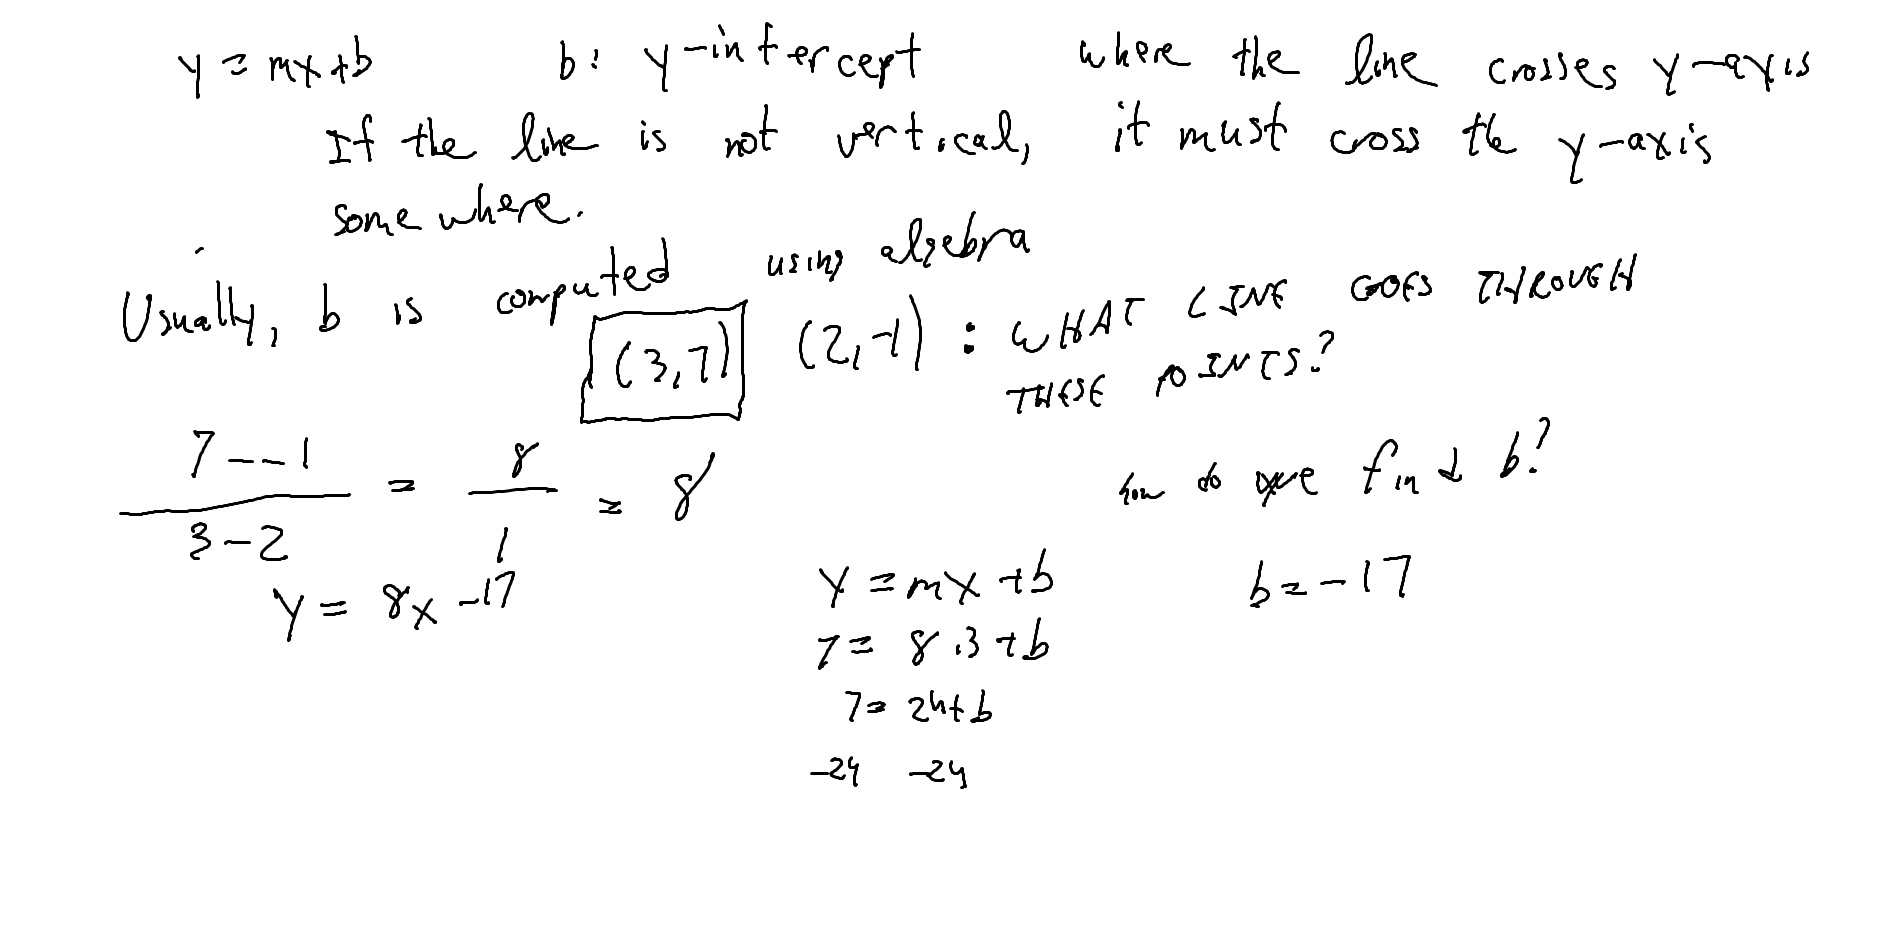 y = mx+b b: y-intercept where the line crosses y-axis
If the line is not vertical, it must cross the y-axis
somewhere.
Usually, b is computed using algebra
(3,7) (2,-1) : WHAT LINE GOES THROUGH
THESE POINTS?
7--1 / 3-2 = 8/1 = 8
how do we find b?
y = 8x -17
y = mx +b b = -17
7 = 8.3 +b
7 = 24+b
-24 -24